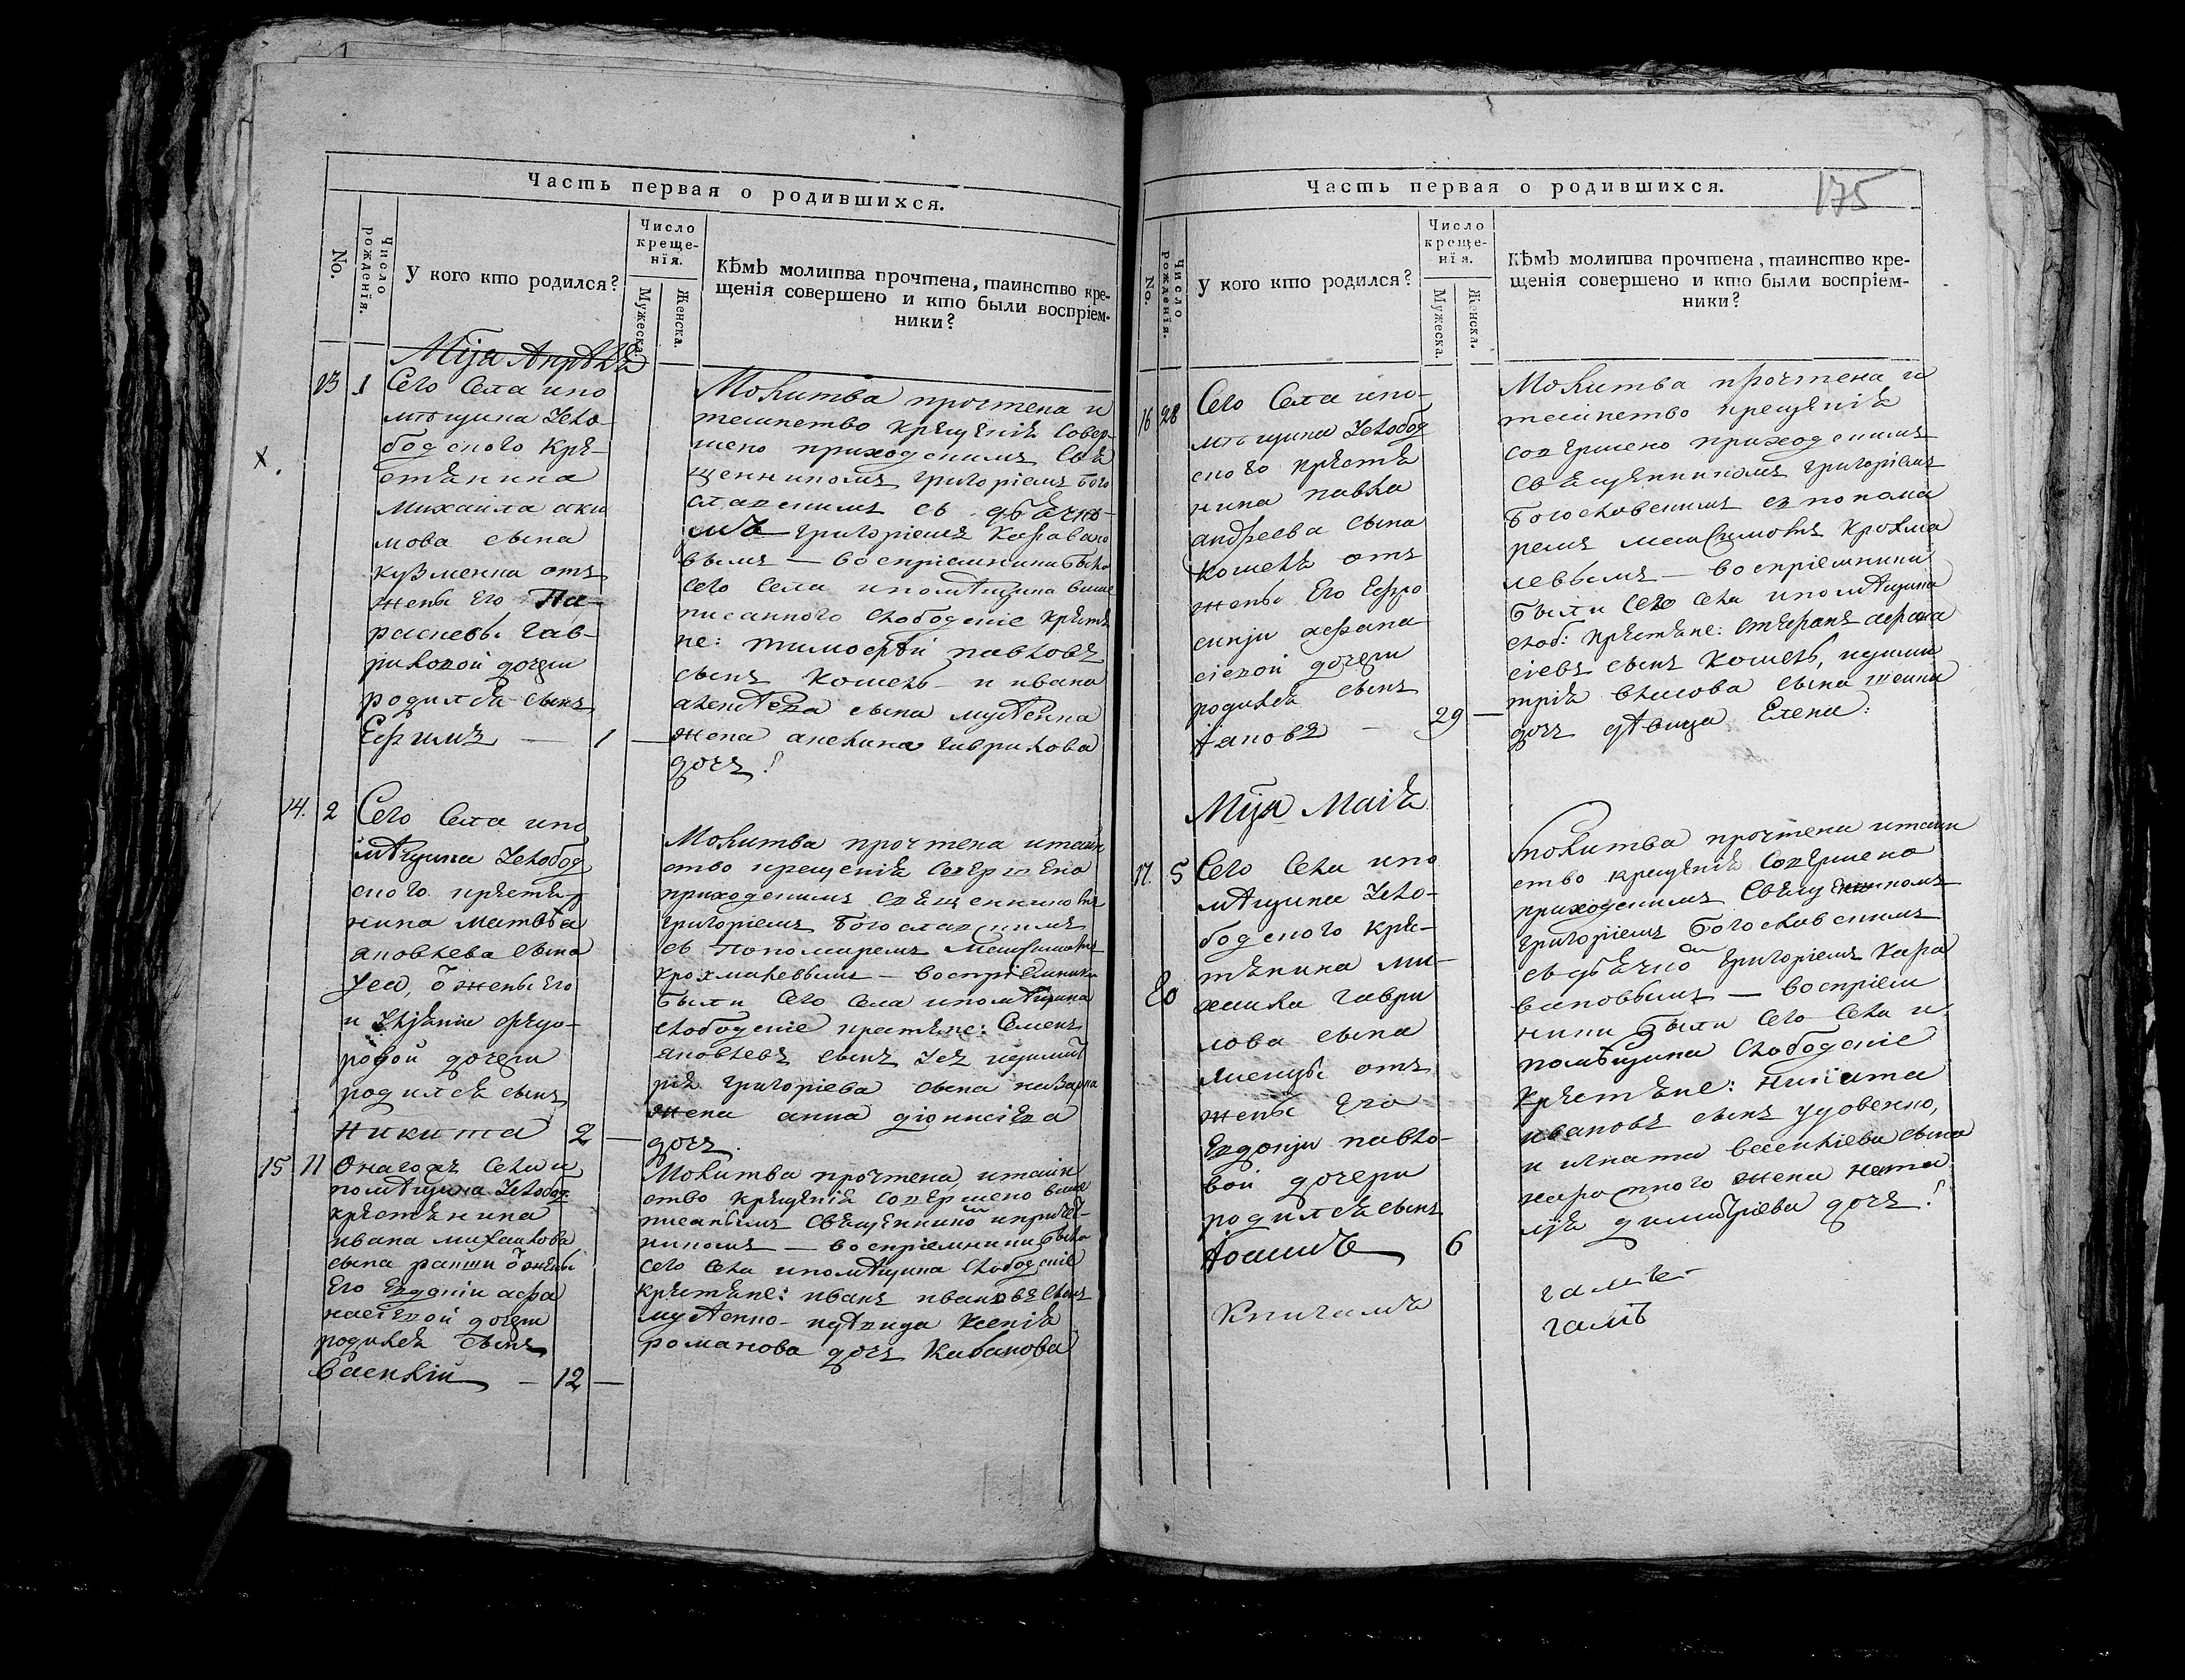 Часть первая о родившихся.
No.
Число рожденія.
У кого кто родился?
Число креще-
нія.
Мужеска.
Женска.
Кѣмъ молитва прочтена, таинство кре-
щенія совершено и кто были воспріем-
ники?
Мца Апрѣля
13 1 Сего Села и по
мѣщика
бодского кре-
стянина
михаила аки
мова сына
кузменка отъ
жены Его Па-
расковы гав-
риловой дочери
родился сынъ
Ефимъ — 1 —
Молитва прочтена и
таинство крещенія совер-
шено приходскимъ Свя
щенникомъ григоріемъ Бого
славскимъ съ дьячко-
мъ григоріемъ
вымъ — воспріемники были
сего Села и помѣщика выше
писанного слободскіе крестя
не: тимофѣй павловъ
сынъ кошель и ивана
сына
жена акелина гаврилова
дочъ
14. 2 Сего Села и по
мѣщика
ского крестя
нина матвѣя
яковлева сына
Уса, ѿ жены Его
ѳедо-
ровой дочери
родился сынъ
Никита 2 —
Молитва прочтена и таин
ство крещенія совершено
приходскимъ священникомъ
григоріемъ Богославскимъ
съ Пономаремъ Максимомъ
крохмалевымъ — воспріемники
были Сего Села и помѣщика
слободскіе крестяне: Семенъ
яковлевъ сынъ Усъ и димит
рія григоріева сына назарка
жена анна діонисіева
дочъ
15 11 Онагожъ Села и
помѣщика
крестянина
ивана михайлова
сына ѿ жены
Его Евдокіи афа
насіевой дочери
родился сынъ
Василій — 12 —
Молитва прочтена, и таин
ство крещенія совершено выше
писаннымъ священнико и причет-
никомъ — воспріемники были
сего Села и помѣщика слободскіе
крестяне: иванъ ивановъ сынъ
и дѣвица Ксенія
романова дочъ Кабанова
Часть первая о родившихся.
175
No.
Число рожденія.
У кого кто родился?
Число креще-
нія.
Мужеска.
Женска.
Кѣмъ молитва прочтена, таинство кре-
щенія совершено и кто были воспріем-
ники?
16 28 Сего Села и по-
мѣщика
ского крестя
нина павла
андреева сына
кошеля отъ
жены Его Ефро
синіи афана
сіевой дочери
родился сынъ
Іаковъ — 29 —
Молитва прочтена и
таинство крещенія
совершено приходскимъ
священникомъ григоріемъ
Богословскимъ съ понома
ремъ максимомъ крохма
левымъ — воспріемники
были сего села и помѣщика
слоб: крестяне: стефанъ афана
сіевъ сынъ кошель, и дими
трія сына
дочъ дѣвица Елена:
Мца Маія
17. 5 Сего Села и по
мѣщика
бодского кре-
стянина ми-
хаила гаври
лова сына
отъ
жены Его
Евдокіи павло-
вой дочери
родился сынъ
Іоаннъ 6
Молитва прочтена и таин
ство крещенія совершено
приходскимъ священникомъ
григоріемъ Богославскимъ
съ дьячко григоріемъ
— воспріем
ники были сего Села и
помѣщика слободскіе
крестяне: никита
ивановъ сынъ удовенко,
и игната василіева сына
жена ната
лія димитріева дочъ